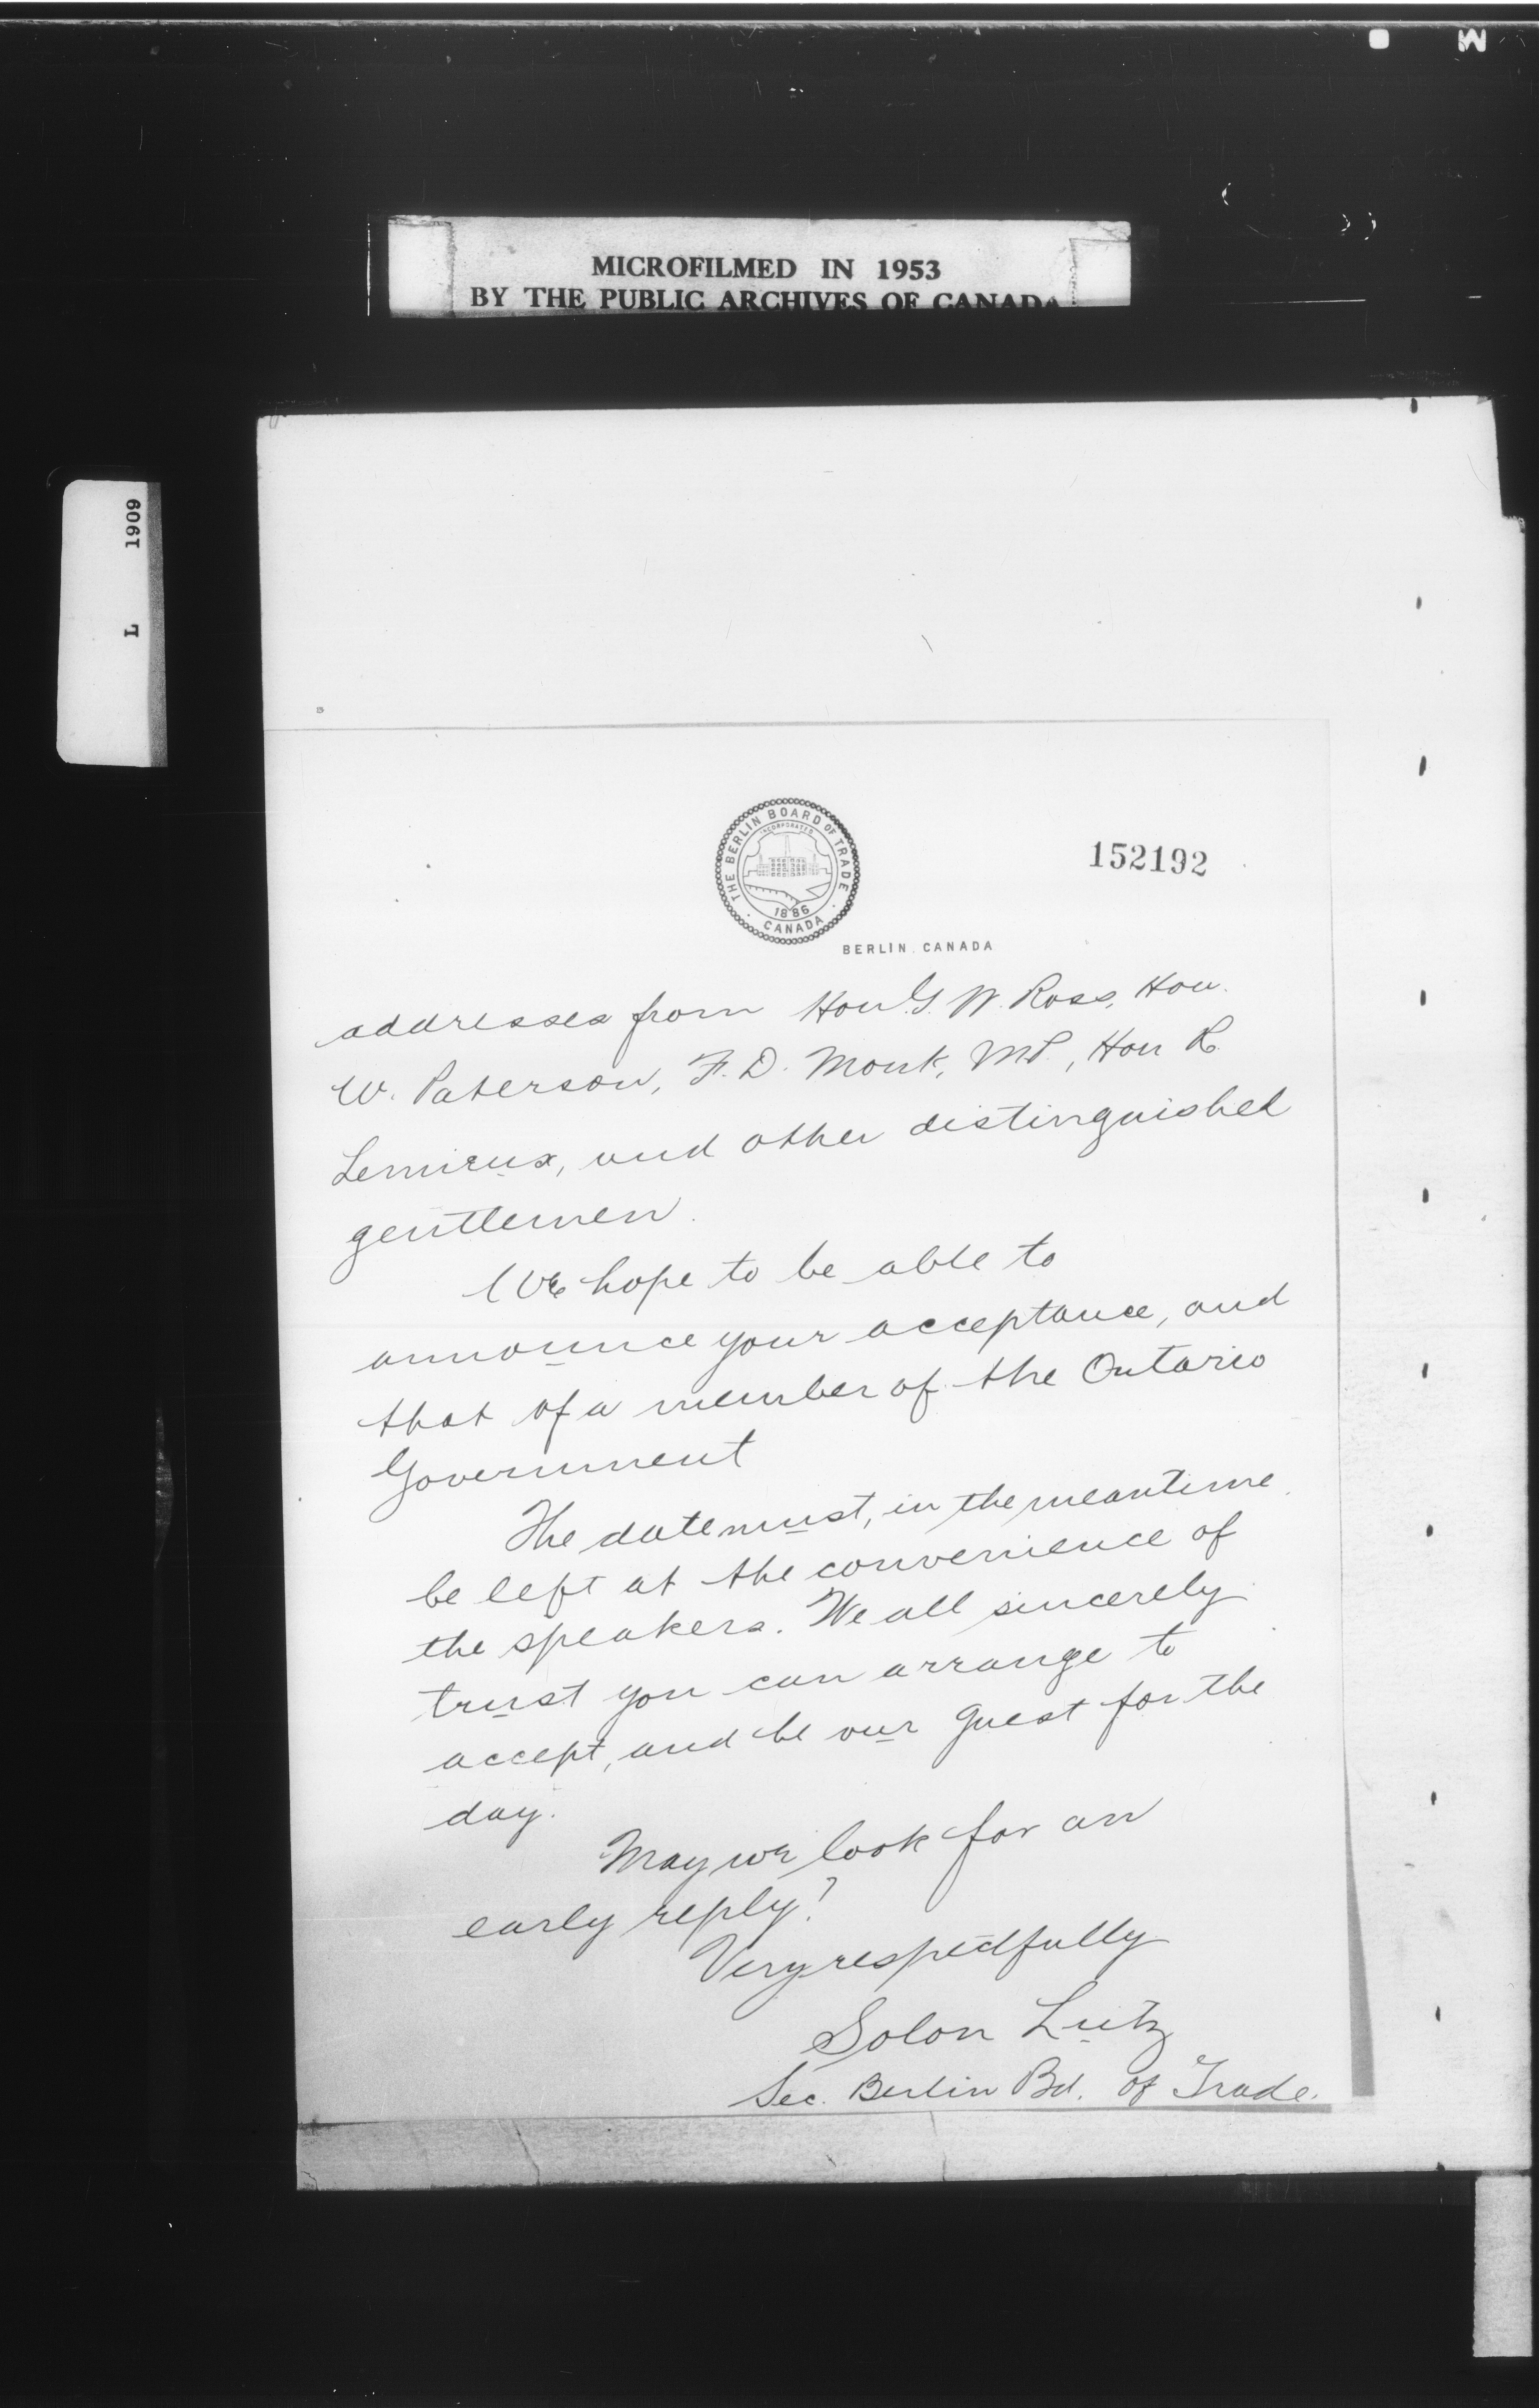 MICROFILMED IN 1953
BY THE PUBLIC ARCHIVES OF CANADA
1909
L
THE BERLIN BOARD OF TRADE
INCORPORATED
1886
CANADA
152192
BERLIN, CANADA
addresses from Hon. G. W. Ross, Hon.
W. Paterson, F. D. Monk, MP., Hon R.
Lemieux, and other distinguished
gentlemen.
We hope to be able to
announce your acceptance, and
that of a member of the Ontario
Government
The date must, in the meantime,
be left at the convenience of
the speakers. We all sincerely
trust you can arrange to
accept, and be our guest for the
day.
May we look for an
early reply?
Very respectfully
Solon Lutz
Sec. Berlin Bd. of Trade.